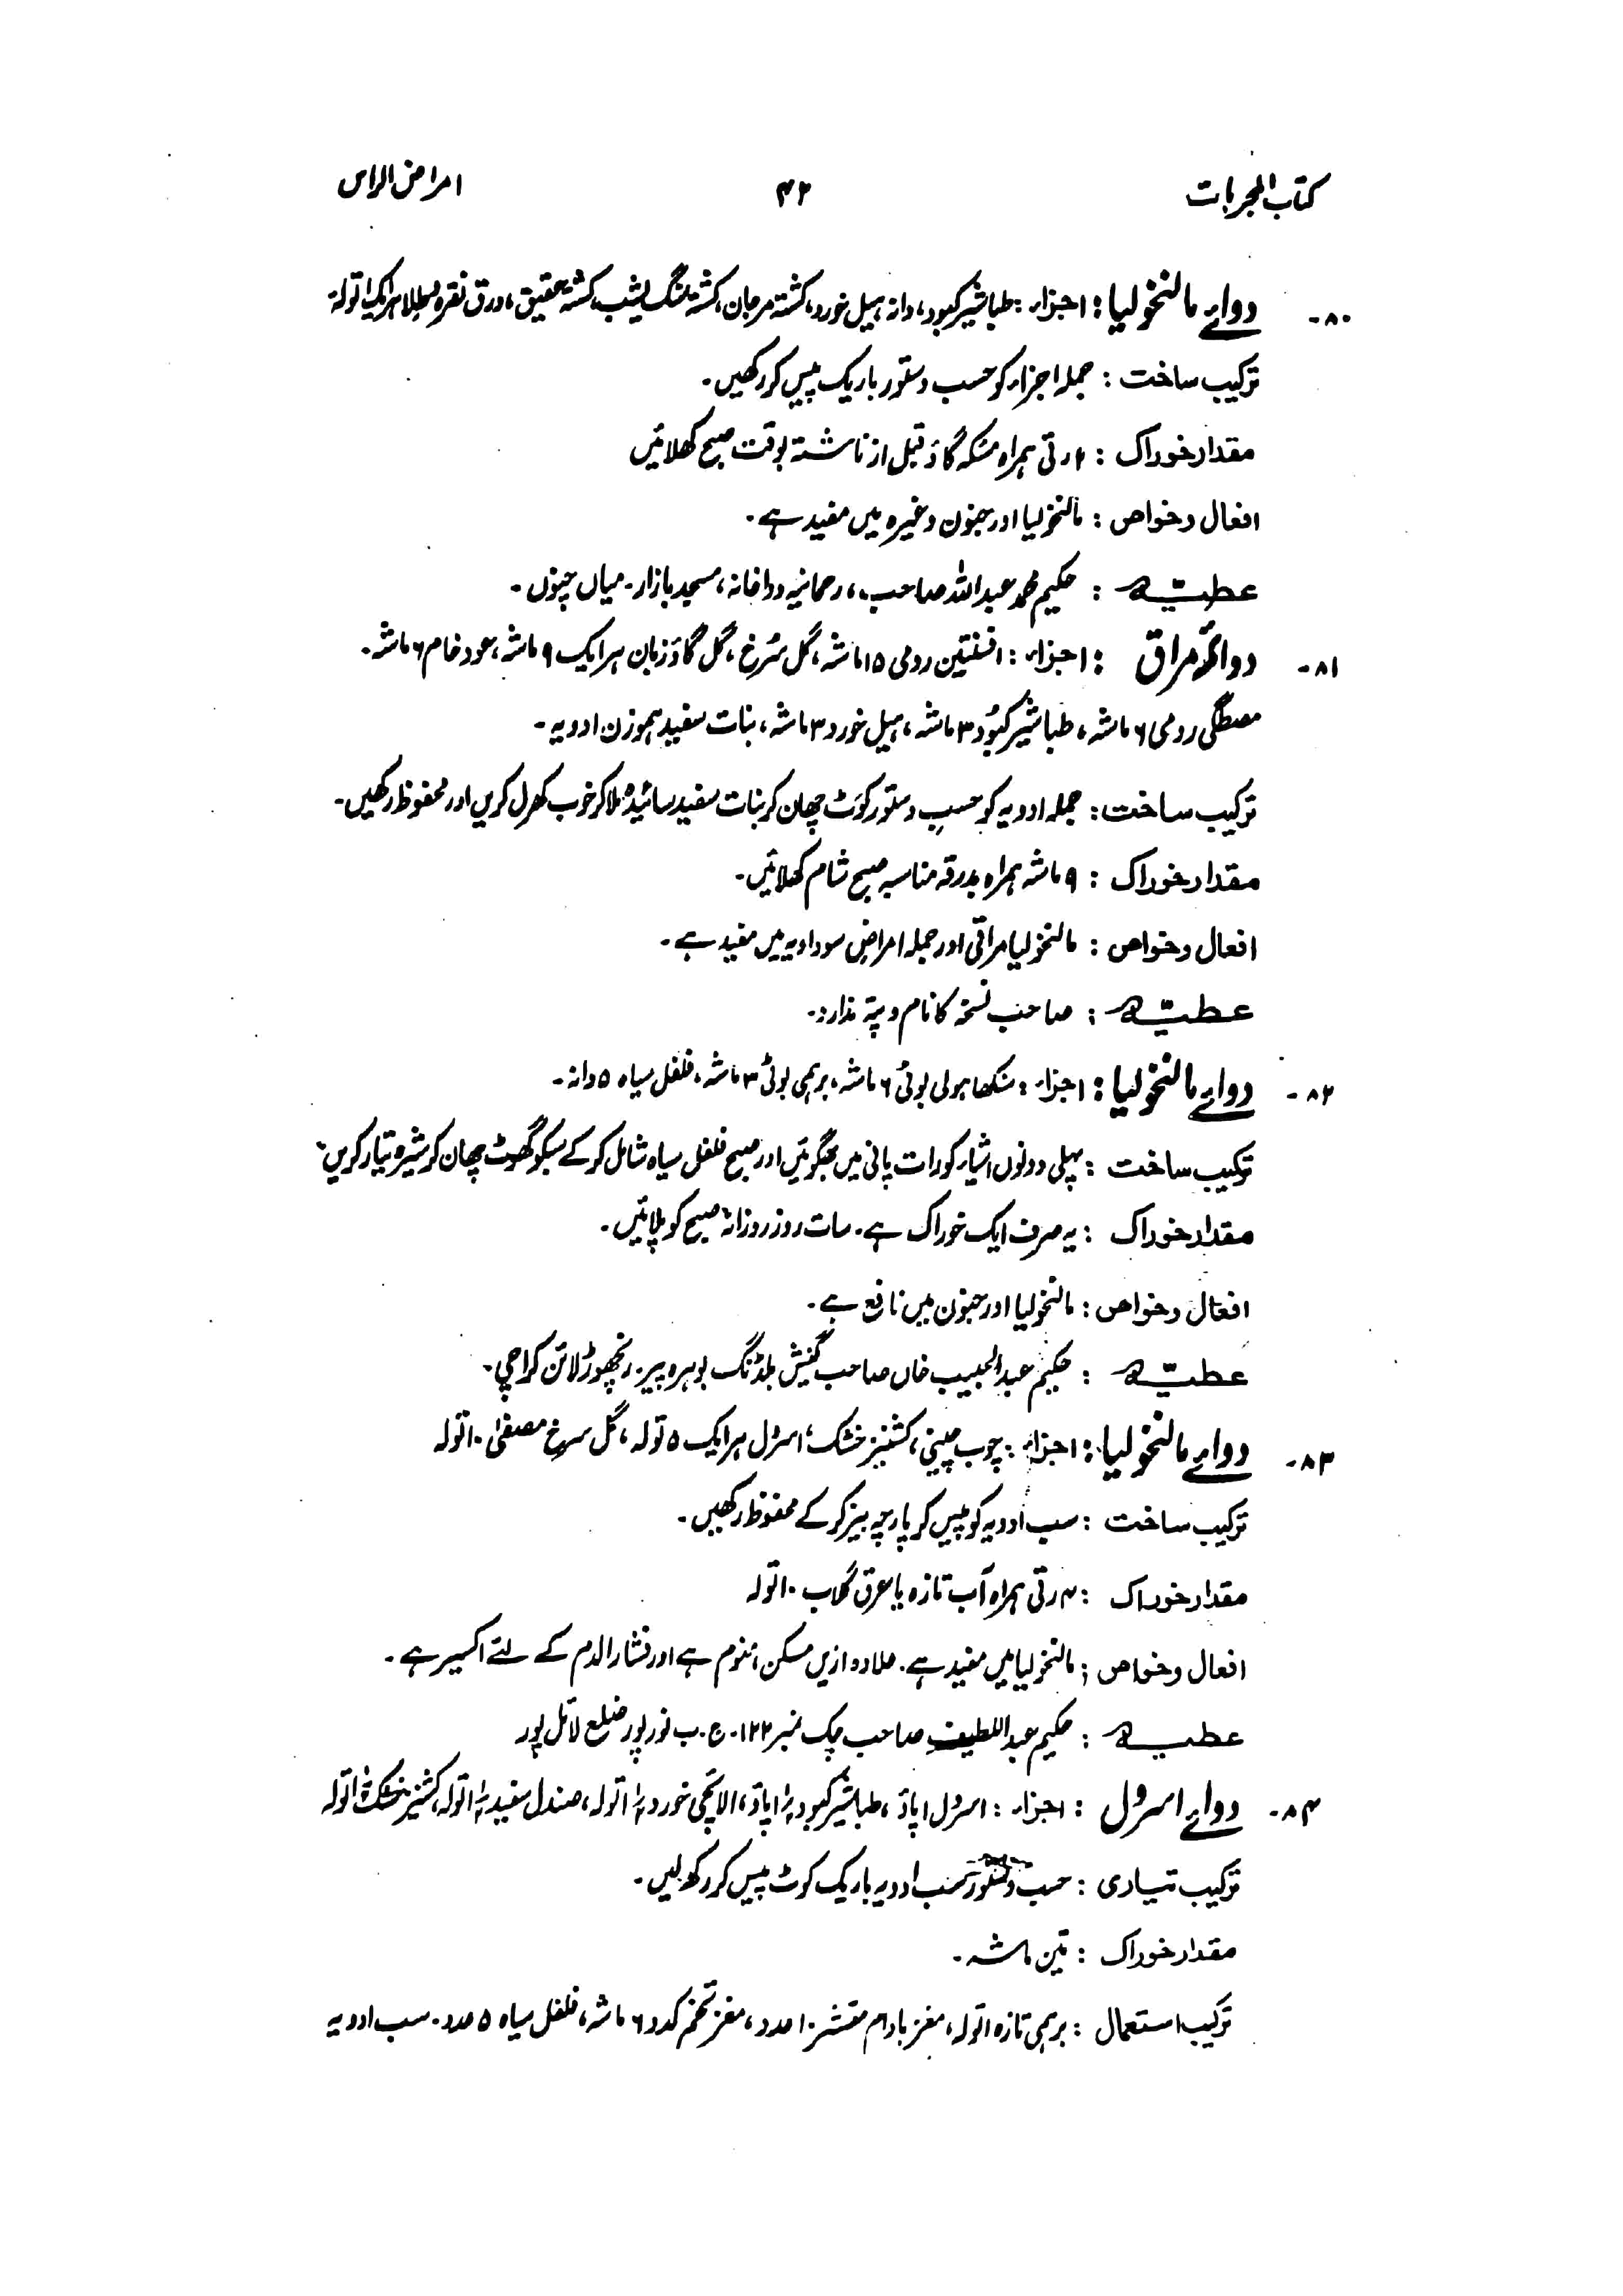 کتاب المجربات ۴۲ امراض الراس
۸۰- دوائے مالنخولیا: اجزاء: طباشیر کبود، دانہ ہیل خورد، کشتہ مرجان، کشتہ سنگ یشب، کشتہ عقیق، ورق نقرہ و طلا ہر ایک ا تولہ
ترکیب ساخت: جملہ اجزاء کو حسب دستور باریک پیس کر رکھیں۔
مقدار خوراک: رتی ہمراہ مسکہ گاؤ قبل از ناشتہ بوقت صبح کھلائیں
افعال و خواص: مالنخولیا اور جنون وغیرہ میں مفید ہے۔
عطیّہ: حکیم محمد عبداللہ صاحب، رحمانیہ دواخانہ، مسجد بازار۔ میاں چنوں۔
۸۱- دوائے مراق: اجزاء: افسنتین رومی ۱۵ ماشہ، گل سُرخ، گل گاؤزبان ہر ایک ۹ ماشہ، عود خام ۶ ماشہ۔
مصطگی رومی ۶ ماشہ، طباشیر کبُود ۳ ماشہ، ہیل خورد ۳ ماشہ، نبات سفید ہموزن ادویہ۔
ترکیب ساخت: جملہ ادویہ کو حسبِ دستور کوٹ چھان کر نبات سفید سائیدہ ملا کر خوب کھرل کریں اور محفوظ رکھیں۔
مقدار خوراک: ۹ ماشہ ہمراہ بدرقہ مناسبہ صبح شام کھلائیں۔
افعال و خواص: مالنخولیا مراقی اور جملہ امراضِ سوداویہ میں مفید ہے۔
عطیّہ: صاحب نسخہ کا نام و پتہ ندارد۔
۸۲- دوائے مالنخولیا: اجزاء: سنکھا ہولی بوٹی ۶ ماشہ، برہمی بوٹی ۳ ماشہ، فلفل سیاہ ۵ دانہ۔
ترکیب ساخت: پہلی دونوں اشیاء کو رات پانی میں بھگوئیں اور صبح فلفل سیاہ شامل کر کے سبکو گھوٹ چھان کر شیرہ تیار کریں۔
مقدار خوراک: یہ صرف ایک خوراک ہے۔ سات روز روزانہ صبح کو پلائیں۔
افعال و خواص: مالنخولیا اور جنون میں نافع ہے۔
عطیّہ: حکیم عبدالحبیب خاں صاحب گنیش بلڈنگ بوہرہ پیر۔ رنچھوڑ لائن کراچی۔
۸۳- دوائے مالنخولیا: اجزاء: چوب چینی، کشنیز خشک، اسرول ہر ایک ۵ تولہ، گل سرخ مصفیٰ ۱۰ تولہ
ترکیب ساخت: سب ادویہ کو پیس کر پارچہ بیز کر کے محفوظ رکھیں۔
مقدار خوراک: ۴ رتی ہمراہ آب تازہ یا عرق گلاب ۱۰ تولہ
افعال و خواص: مالنخولیا میں مفید ہے۔ علاوہ ازیں مسکن، منوم ہے اور فشار الدم کے لئے اکسیر ہے۔
عطیہ: حکیم عبداللطیف صاحب چک نمبر ۱۲۲۔ ج۔ ب نور پور ضلع لائل پور
۸۴- دوائے اسرول: اجزاء: اسرول ا پاؤ، طباشیر کبود پاؤ، الائچی خورد تولہ، صندل سفید تولہ، کشنیز خشک تولہ
ترکیب تیاری: حسب دستور سب ادویہ باریک کوٹ پیس کر رکھ لیں۔
مقدار خوراک: تین ماشہ۔
ترکیب استعمال: برہمی تازہ ا تولہ، مغز بادام مقشر ۱۰ عدد، مغز تخم کدو ۶ ماشہ، فلفل سیاہ ۵ عدد۔ سب ادویہ